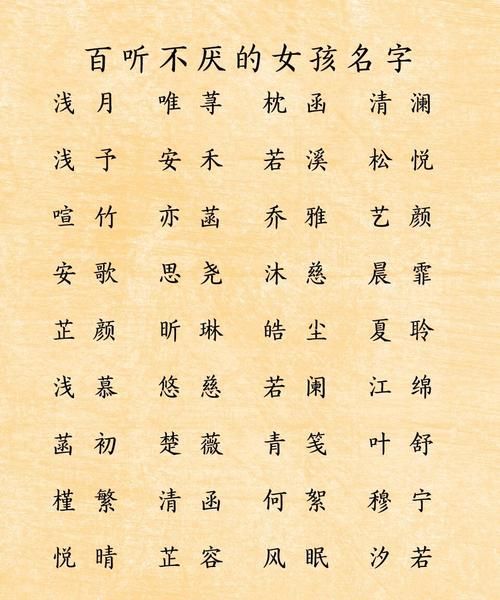 百听不厌的女孩名字
浅月 唯荨 枕函 清澜
浅予 安禾 若溪 松悦
喧竹 亦菡 乔雅 艺颜
安歌 思尧 沐慈 晨霏
芷颜 昕琳 皓尘 夏聆
浅慕 悠慈 若阑 江绵
菡初 楚薇 青笺 叶舒
槿繁 清函 何絮 穆宁
悦晴 芷容 风眠 汐若